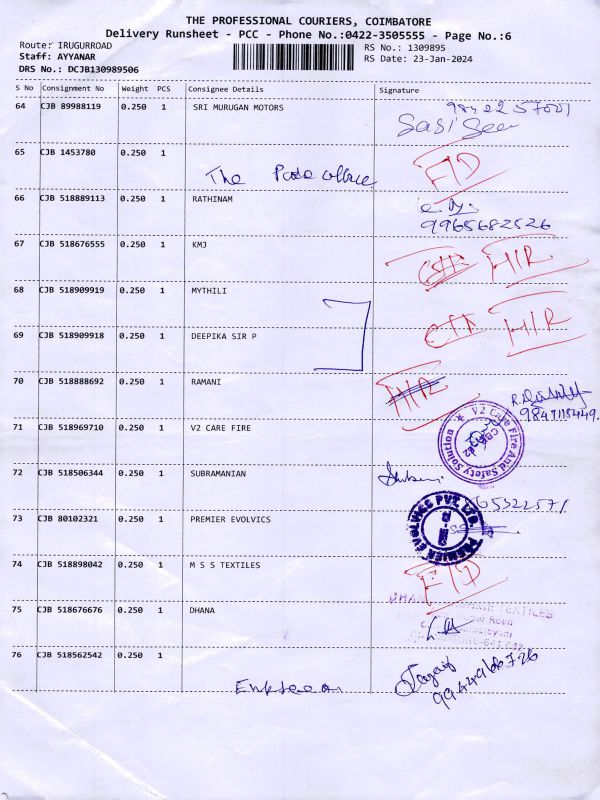 THE PROFESSIONAL COURIERS, COIMBATORE
Delivery Runsheet - PCC - Phone No.:0422-3505555 - Page No.:6
Route: IRUGURROAD
RS No.: 1309895
Staff: AYYANAR
RS Date: 23-Jan-2024
DRS No.: DCJB130989506
S No Consignment No Weight PCS Consignee Details Signature
64 CJB 89988119 0.250 1 SRI MURUGAN MOTORS
65 CJB 1453780 0.250 1
The
66 CJB 518889113 0.250 1 RATHINAM
9965682526
67 CJB 518676555 0.250 1 KMJ
68 CJB 518909919 0.250 1 MYTHILI
69 CJB 518909918 0.250 1 DEEPIKA SIR P
70 CJB 518888692 0.250 1 RAMANI
71 CJB 518969710 0.250 1 V2 CARE FIRE
V2 Care Fire And Safety Solution
72 CJB 518506344 0.250 1 SUBRAMANIAN
73 CJB 80102321 0.250 1 PREMIER EVOLVICS
PREMIER EVOLVICS PVT. LTD.
74 CJB 518898042 0.250 1 M S S TEXTILES
75 CJB 518676676 0.250 1 DHANA
TEXTILES
Road
76 CJB 518562542 0.250 1